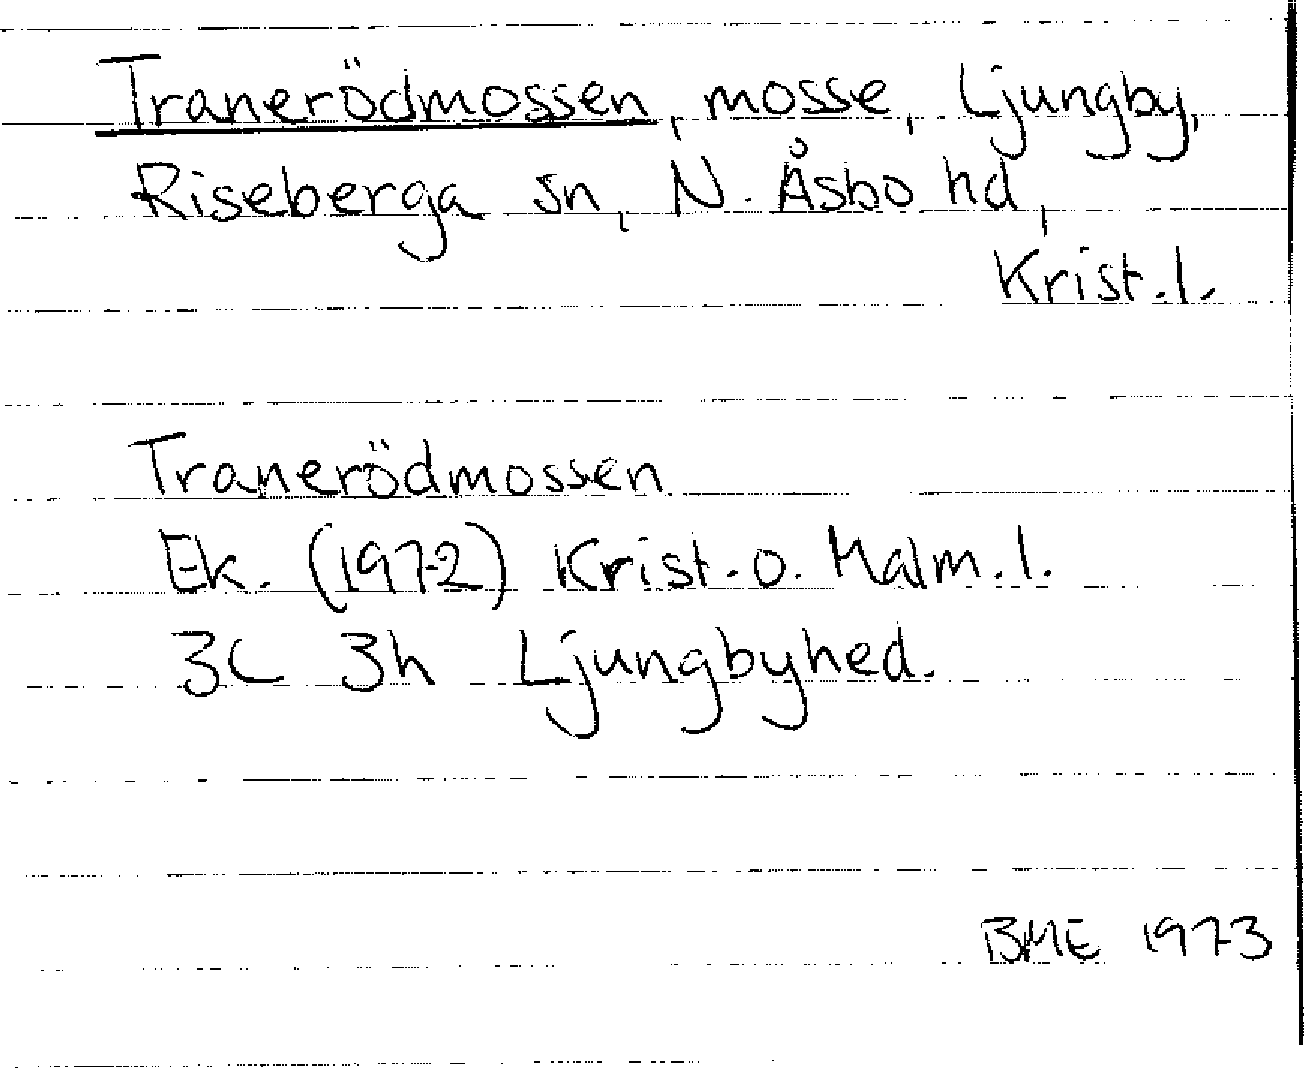 Tranerödmossen, mosse, Ljungby,
Riseberga sn, N. Åsbo hd,
Krist. l.
Tranerödmossen
Ek. (1972) Krist. o. Malm. l.
3C 3h Ljungbyhed.
BME 1973